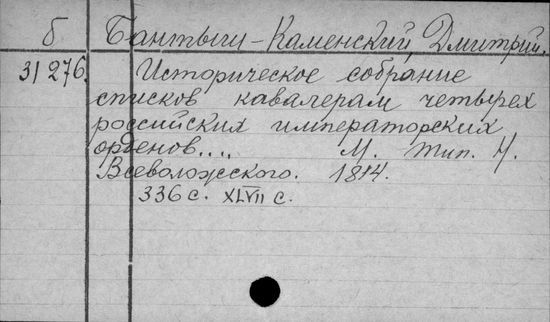 б Бантыш-Каменский, Дмитрий.
31276. Историческое собрание
списков кавалерам четырех
российских императорских
орденов.... М. тип. Н.
Всеволожского. 1814.
336 с. XLVII с.